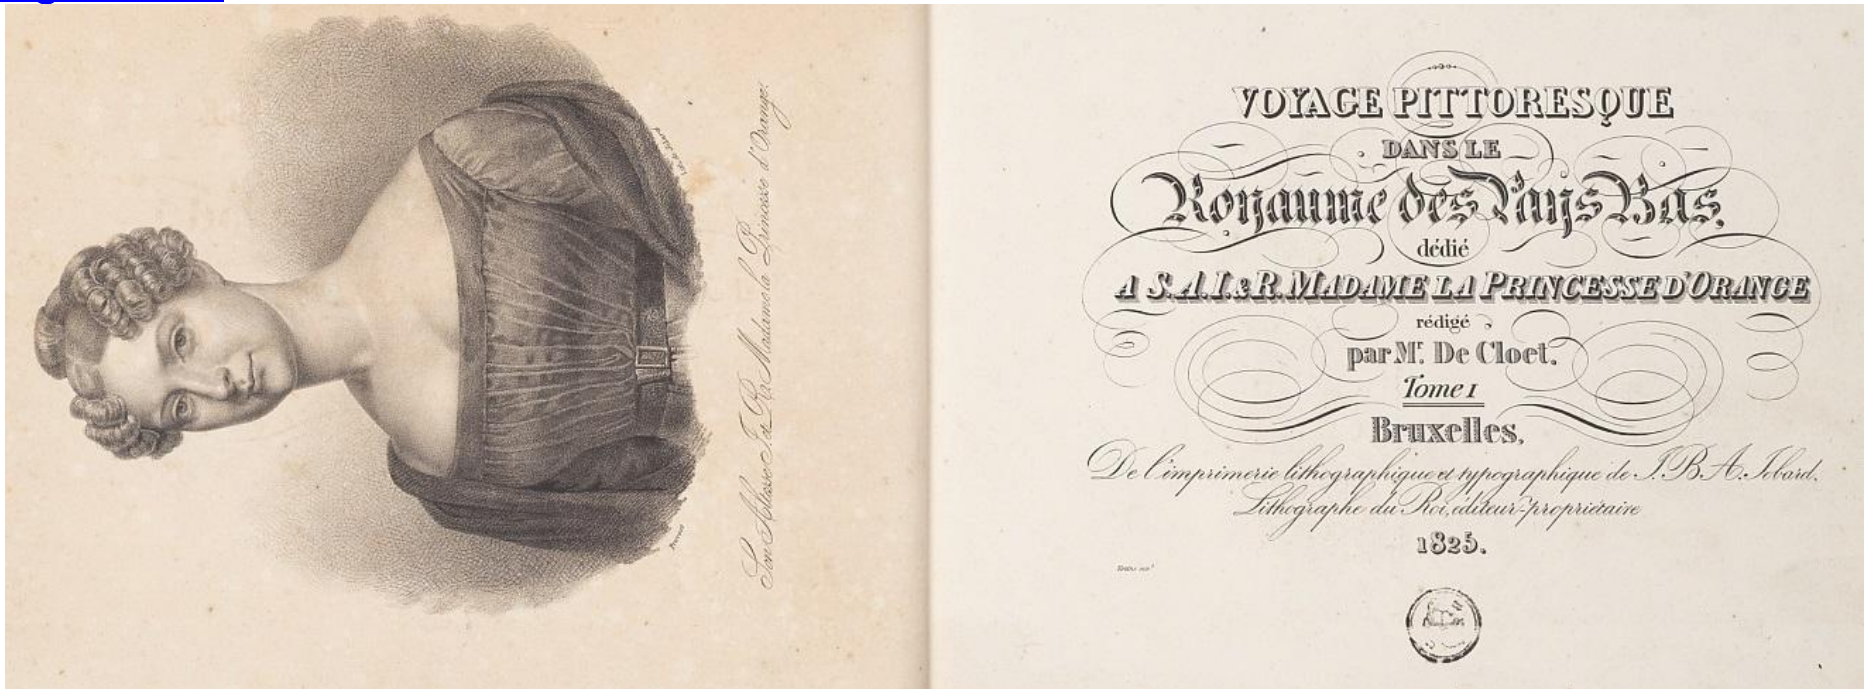 Son Altesse I. & R. Madame la Princesse d'Orange.
VOYAGE PITTORESQUE
DANS LE
Royaume des Pays Bas,
dédié
A S.A.I. & R. MADAME LA PRINCESSE D'ORANGE
rédigé
par Mr. De Cloet.
Tome I
Bruxelles,
De l'imprimerie lithographique et typographique de J.B.A. Jobard.
Lithographe du Roi, éditeur-propriétaire
1825.